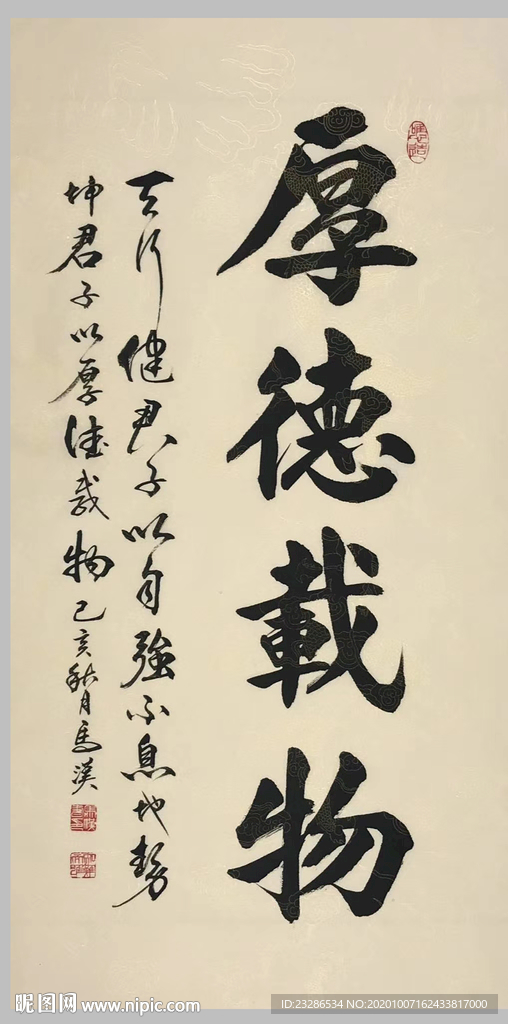 厚德載物
天行健君子以自強不息地勢
坤君子以厚德載物己亥秋月馬漢
昵图网 www.nipic.com
ID:23286534 NO:20201007162433817000